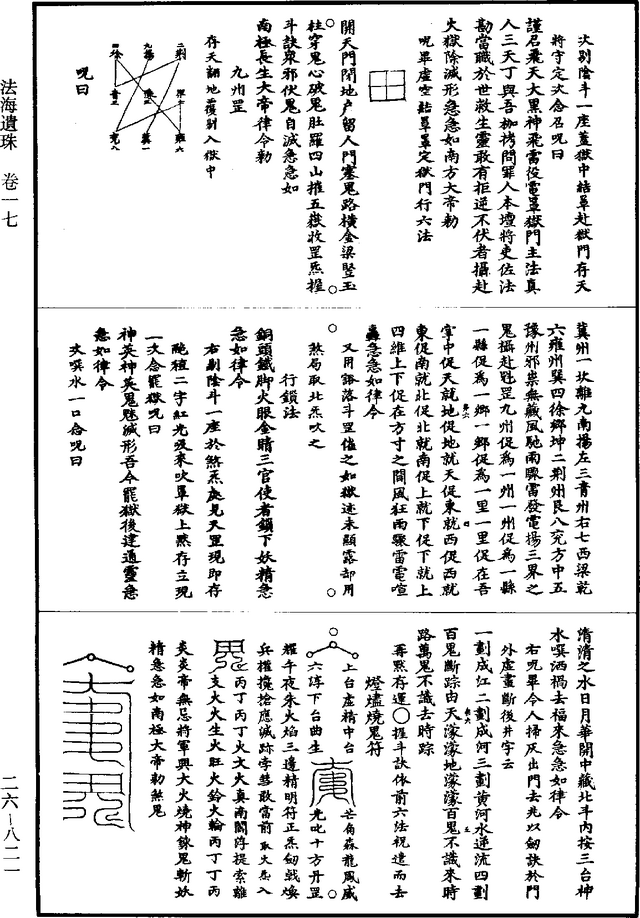 法海遺珠 卷一七
二六—八二一
次剔陰斗一座蓋獄中結罩赴獄門存天
將守定次念召咒曰
謹召飛天大黑神飛雷役電罩獄門主法真
人三天丁與吾枷拷問罪人本壇將吏佐法
勘當職於世救生靈敢有拒逆不伏者攝赴
火獄除滅形急急如南方大帝勅
咒畢虛空結罩罩定獄門行六法
開天門閉地户留人門塞鬼路橫金梁豎玉
柱穿鬼心破鬼肚羅四山摧五嶽收罡炁握
斗訣衆邪伏鬼自滅急急如
南極長生大帝律令勅
九州罡
存天翻地覆剔入獄中
咒曰
冀州一坎離九南揚左三青州右七西梁乾
六雍州巽四徐鄉坤二荆州艮八兖方中五
豫州邪祟無藏風馳雨驟雷發電揚三界之
鬼攝赴魁罡九州促爲一州一州促爲一縣
一縣促爲一鄉一鄉促爲一里一里促在吾
掌中促天就地促地就天促東就西促西就
東促南就北促北就南促上就下促下就上
四維上下促在方寸之間風狂雨驟雷電喧
轟急急如律令
又用錫落斗罡催之如獄迹未顯露却用
煞局取北炁吹之
行鎖法
銅頭鐵脚火眼金睛三官使者鎖下妖精急
急如律令
右剔陰斗一座於煞炁處見天罡現即存
二字紅光吸來吹罩獄上黙存立現
一次念罷獄咒曰
神英神英鬼魅滅形吾今罷獄後達通靈急
急如律令
次噀水一口念咒曰
清清之水日月華開中藏北斗内按三台神
水噀洒禍去福來急急如律令
右咒畢令人掃灰出門去訖以劒訣於門
外虛畫斷後井字云
一劃成江二劃成河三劃黄河水逆流四劃
百鬼斷踪由天濛濛地濛濛百鬼不識來時
路萬鬼不識去時踪
再黙存運〇握斗訣依前六法祝遣而去
燈燼燒鬼符
上台虛精中台
六淳下台曲生
芒角森龍鳳威
光叱十方丹罡
耀午夜朱火焰三邊精明符正炁劒戟煥
兵權攙搶應滅跡孛彗敢當前
丙丁丙丁火文火真南閣浮提索離
支火火生火旺火鈴火輪丙丁丁丙
炎炎帝無忌將軍興大火燒神錬鬼斬妖
精急急如南極大帝勅煞鬼